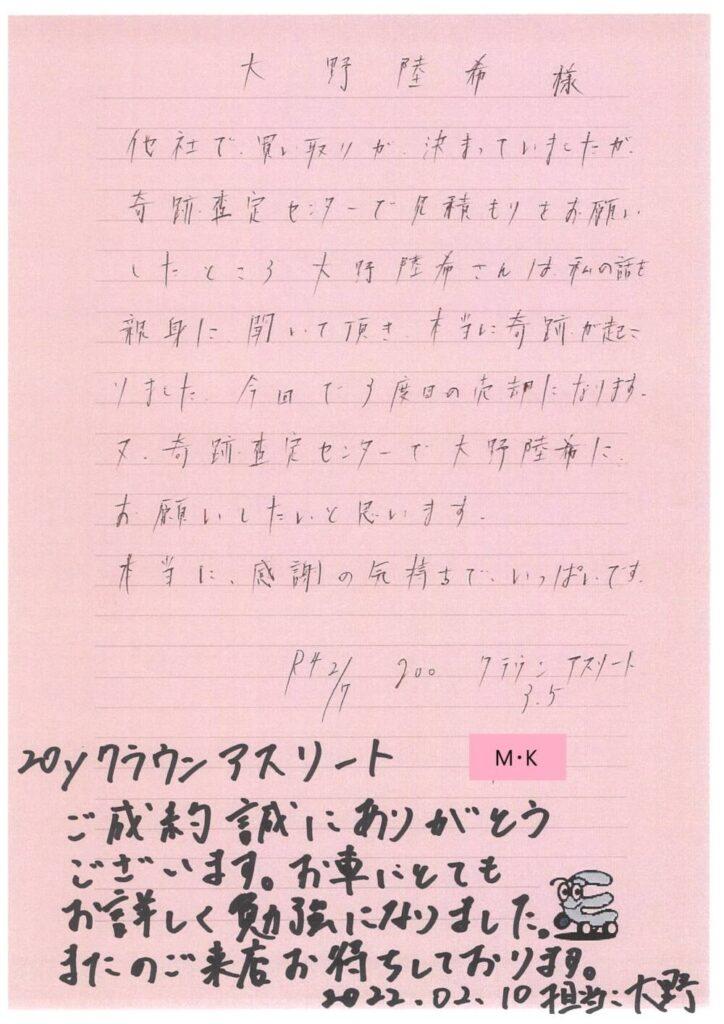 大野陸希様
他社で買い取りが、決まっていましたが、
奇跡査定センターで見積もりをお願い
したところ 大野陸希さんは、私の話を
親身に聞いて頂き 本当に奇跡が起こ
りました。今回で3度目の売却になります。
又、奇跡査定センターで大野陸希に、
お願いしたいと思います。
本当に、感謝の気持ちで、いっぱいです。
R4 2/7 200 クラウンアスリート
3.5
20yクラウンアスリート
M・K
ご成約誠にありがとう
ございます。お車にとても
お詳しく勉強になりました。
またのご来店お待ちしております。
2022.02.10 担当:大野